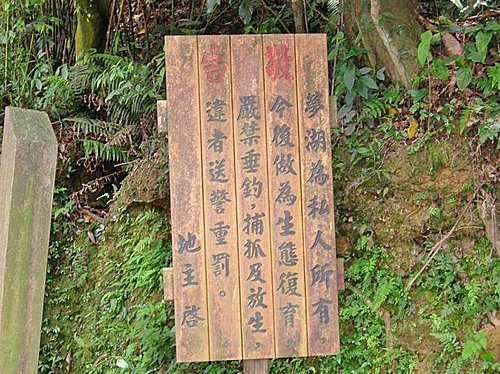 敬告
夢湖為私人所有，
今後做為生態復育，
嚴禁垂釣，捕抓及放生，
違者送警重罰。
地主啓